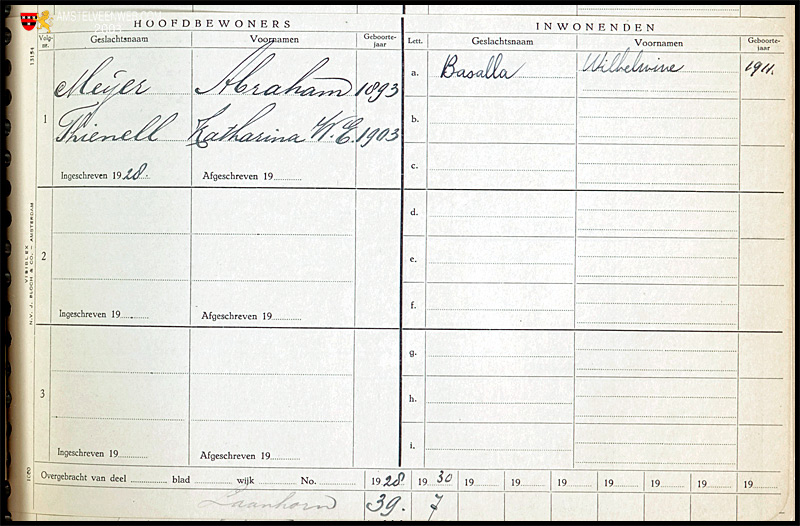 AMSTELVEENWEB.COM
HOOFDBEWONERS
Volg-nr. Geslachtsnaam Voornamen Geboorte-jaar
1 Meijer Abraham 1893
Thienell Katharina W. E. 1903
Ingeschreven 1928. Afgeschreven 19
2
Ingeschreven 19 Afgeschreven 19
3
Ingeschreven 19 Afgeschreven 19
INWONENDEN
Lett. Geslachtsnaam Voornamen Geboorte-jaar
a. Basalla Wilhelmine 1911.
b.
c.
d.
e.
f.
g.
h.
i.
Overgebracht van deel blad wijk No. 1928 1930 19 19 19 19 19 19 19
Laanhorn 39. 7
13154
VISIBLEX
N.V. J. BLOCH & CO. – AMSTERDAM